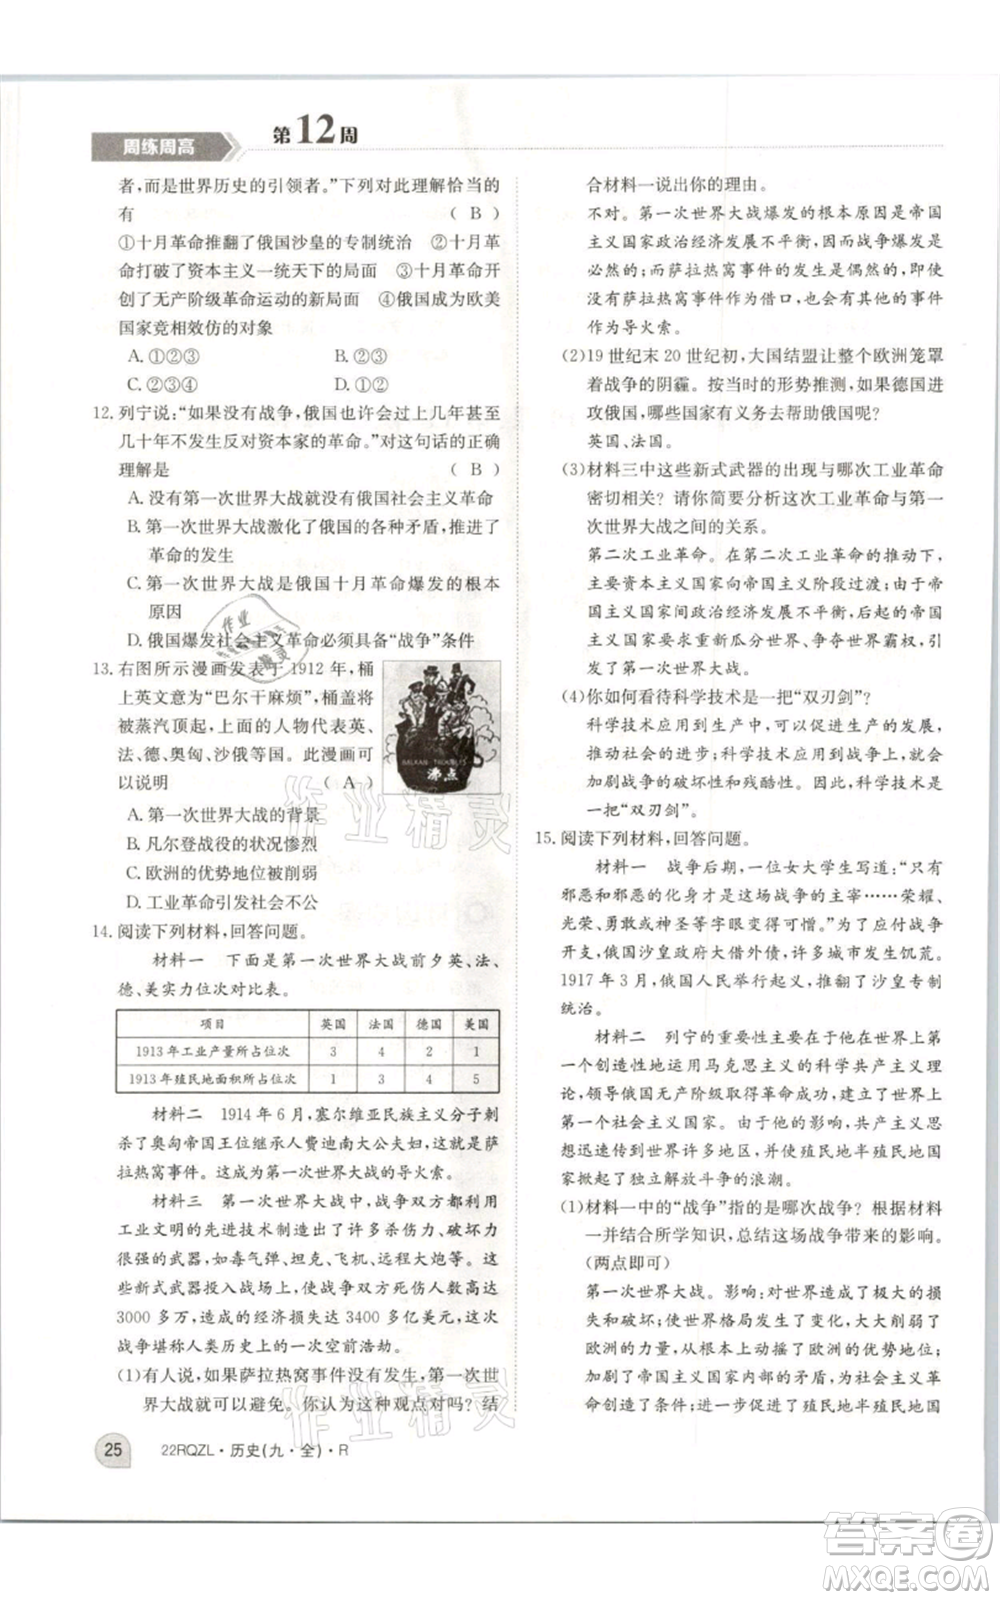 周练周高
第12周
者,而是世界历史的引领者。”下列对此理解恰当的
有 ( B )
①十月革命推翻了俄国沙皇的专制统治 ②十月革
命打破了资本主义一统天下的局面 ③十月革命开
创了无产阶级革命运动的新局面 ④俄国成为欧美
国家竞相效仿的对象
A.①②③ B.②③
C.②③④ D.①②
12.列宁说:“如果没有战争,俄国也许会过上几年甚至
几十年不发生反对资本家的革命。”对这句话的正确
理解是 ( B )
A.没有第一次世界大战就没有俄国社会主义革命
B.第一次世界大战激化了俄国的各种矛盾,促进了
革命的发生
C.第一次世界大战是俄国十月革命爆发的根本
原因
D.俄国爆发社会主义革命必须具备“战争”条件
13.右图所示漫画发表于1912年,桶
上英文意为“巴尔干麻烦”,桶盖将
被蒸汽顶起,上面的人物代表英、
法、德、奥匈、沙俄等国。此漫画可
以说明 ( A )
BALKAN TROUBLES
沸点
A.第一次世界大战的背景
B.凡尔登战役的状况惨烈
C.欧洲的优势地位被削弱
D.工业革命引发社会不公
14.阅读下列材料,回答问题。
材料一 下面是第一次世界大战前夕英、法、
德、美实力位次对比表。
项目 英国 法国 德国 美国
1913年工业产量所占位次 3 4 2 1
1913年殖民地面积所占位次 1 3 4 5
材料二 1914年6月,塞尔维亚民族主义分子刺
杀了奥匈帝国王位继承人费迪南大公夫妇,这是萨
拉热窝事件。这成为第一次世界大战的导火索。
材料三 第一次世界大战中,战争双方都利用
工业文明的先进技术制造出了许多杀伤力、破坏力
很强的武器,如毒气弹、坦克、飞机、远程大炮等。这
些新式武器投入战场,使战争双方死伤人数超过
3000多万,造成的经济损失达3400多亿美元,这次
战争堪称人类历史上的一次空前浩劫。
(1)有人说,如果萨拉热窝事件没有发生,第一次世
界大战就可以避免。你认为这种观点对吗?结
合材料一说出你的理由。
不对。第一次世界大战爆发的根本原因是帝国
主义国家政治经济发展不平衡,因而战争爆发是
必然的;而萨拉热窝事件的发生具有偶然性,即使
没有萨拉热窝事件作为借口,也会有其他的事件
作为导火索。
(2)19世纪末20世纪初,大国结盟让整个欧洲笼罩
着战争的阴霾。按当时的形势推测,如果德国进
攻俄国,哪些国家有义务去帮助俄国呢?
英国、法国。
(3)材料三中这些新式武器的出现与哪次工业革命
密切相关?请你简要分析这次工业革命与第一
次世界大战之间的关系。
第二次工业革命。在第二次工业革命的推动下,
主要资本主义国家向帝国主义阶段过渡;由于帝
国主义国家间政治经济发展的不平衡,后起的帝
国主义国家要求重新瓜分世界、争夺世界霸权,
导致了第一次世界大战。
(4)你如何看待科学技术是一把“双刃剑”?
科学技术应用到生产中,可以促进生产的发展,
造福人类;科学技术应用到战争上,又可能会加
剧战争的破坏性和残酷性。所以说,科学技术是
一把“双刃剑”。
15.阅读下列材料,回答问题。
材料一 战争后期,一位女大学生写道:“只有
邪恶和邪恶的化身才是这场战争的主宰……荣耀、
光荣、勇敢或神圣等字眼变得空洞。”为了应付战争
开支,俄国沙皇政府大借外债,许多城市发生饥荒。
1917年3月,俄国人民举行起义,推翻了沙皇专制
统治。
材料二 列宁的重要性主要在于他在世界上第
一个创造性地运用马克思主义的科学共产主义理
论,领导俄国的无产阶级取得革命成功,第一次建立
了社会主义国家。在他的影响下,共产主义思想
迅速传遍到世界许多地区,并使一大批殖民地国
家掀起了独立解放斗争的浪潮。
(1)材料一中的“战争”指的是哪次战争?根据材料
一并结合所学知识,总结这场战争带来的影响。
(两点即可)
第一次世界大战。影响:对世界造成了极大的损
失和破坏;使世界格局发生了变化,大大削弱了
欧洲的力量,从根本上动摇了欧洲的优势地位,
加剧了帝国主义国家内部矛盾,推动了社会主义革
命和殖民地半殖民地民族民主运动的发展。
25 22RQZL·历史(九·全)·R
作业精灵
作业精灵
作业精灵
答案圈
MXQE.COM